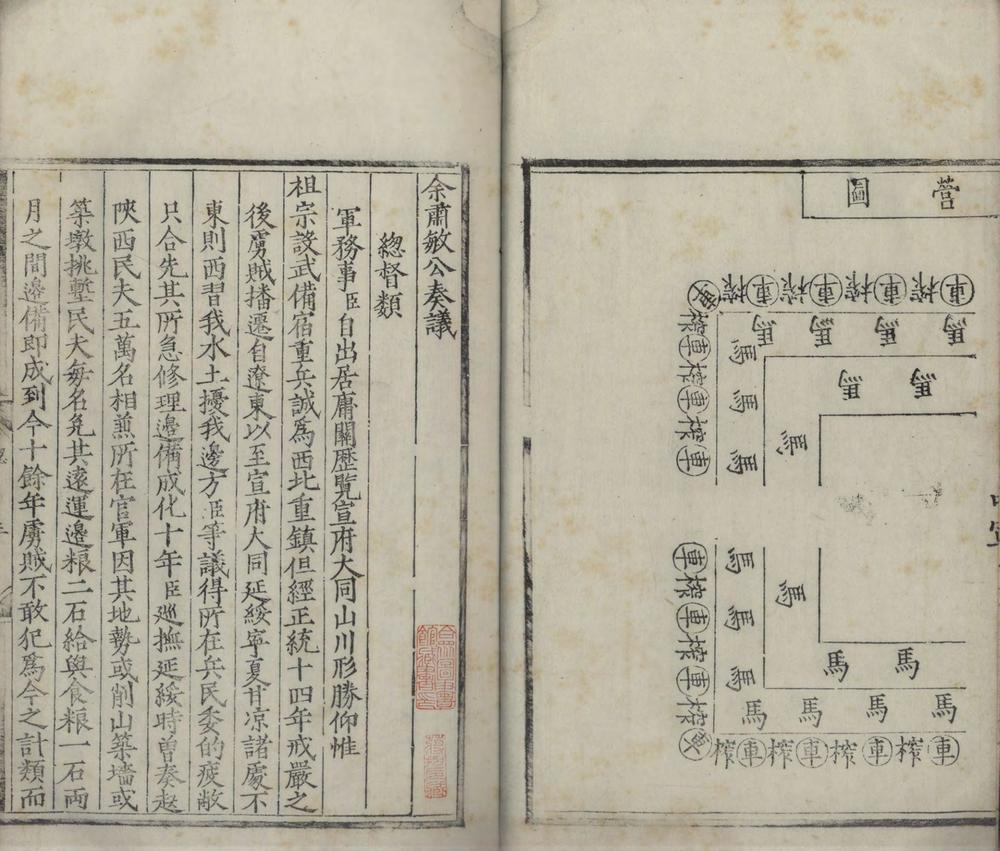 營圖
車榨車榨車榨車榨
馬馬馬馬
馬馬
榨車榨車榨車
馬馬馬
馬
車榨車榨車榨
馬馬馬
馬
馬馬
馬馬馬馬
榨車榨車榨車榨車
余肅敏公奏議
總督類
軍務事臣自出居庸關歷覽宣府大同山川形勝仰惟
祖宗設武備宿重兵誠爲西北重鎮但經正統十四年戒嚴之
後虜賊播遷自遼東以至宣府大同延綏寧夏甘凉諸處不
東則西習我水土擾我邊方臣等議得所在兵民委的疲敝
只合先其所急修理邊備成化十年臣廵撫延綏時曾奏起
陝西民夫五萬名相兼所在官軍因其地勢或削山築墻或
築墩挑塹民夫每名免其遠運邊粮二石給與食粮一石兩
月之間邊備即成到今十餘年虜賊不敢犯爲今之計類而